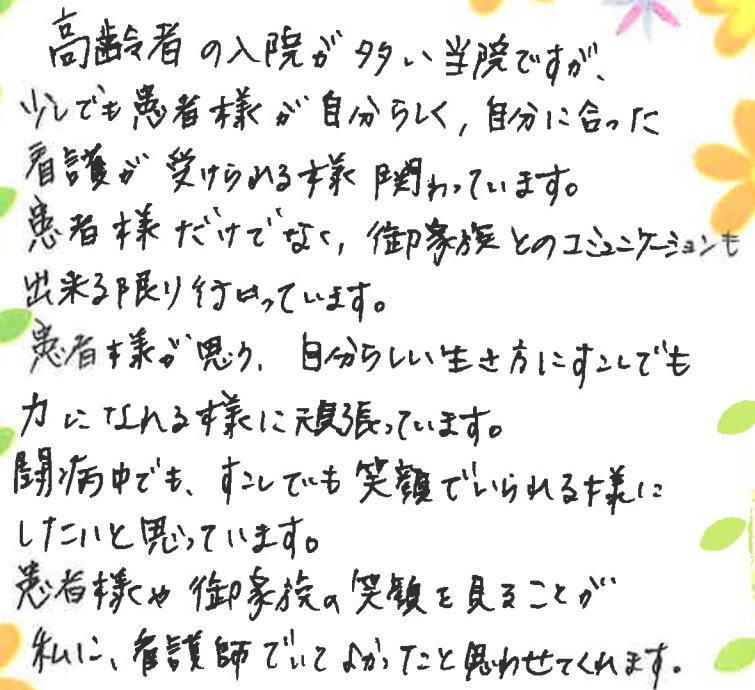 高齢者の入院が多い当院ですが、
少しでも患者様が自分らしく,自分に合った
看護が受けられる様関わっています。
患者様だけでなく,御家族とのコミュニケーションも
出来る限り行なっています。
患者様が思う、自分らしい生き方にすこしでも
力になれる様に頑張っています。
闘病中でも、すこしでも笑顔でいられる様に
したいと思っています。
患者様や御家族の笑顔を見ることが
私に、看護師でいてよかったこと思わせてくれます。